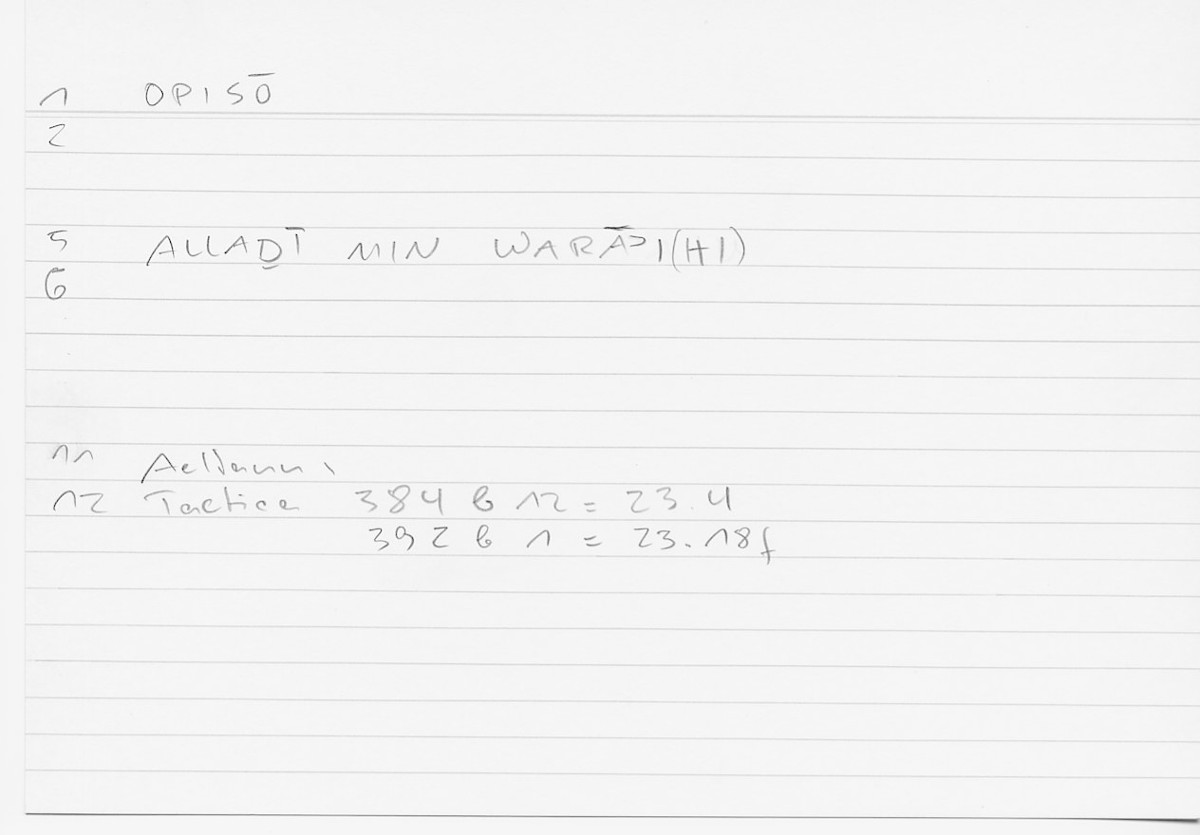 1 OPISŌ
2
5 ALLAḎĪ MIN WARĀʾI(HI)
6
11 Aelianus
12 Tactica 384 b 12 = 23.4
392 b 1 = 23.18f